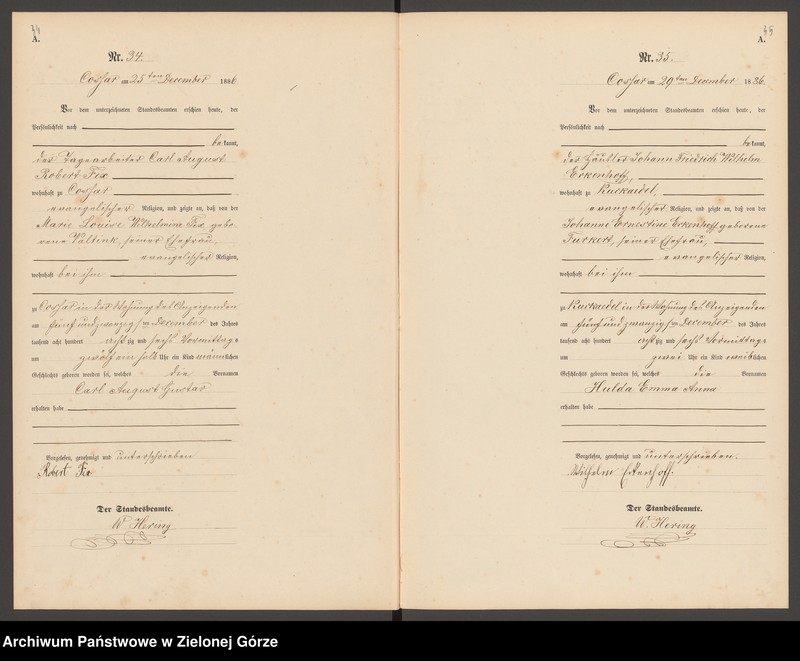 34
A.
Nr. 34.
Cossar am 25ten December 1886
Vor dem unterzeichneten Standesbeamten erschien heute, der
Persönlichkeit nach
bekannt,
der Tagearbeiter Carl August
Robert Fix
wohnhaft zu Cossar
evangelischer Religion, und zeigte an, daß von der
Marie Louise Wilhelmine Fix gebo-
rene Valtink, seiner Ehefrau,
evangelischer Religion,
wohnhaft bei ihm
zu Cossar in der Wohnung des Anzeigenden
am fünf und zwanzigsten December des Jahres
tausend acht hundert achtzig und sechs Vormittags
um zwölf ein halb Uhr ein Kind männlichen
Geschlechts geboren worden sei, welches die Vornamen
Carl August Gustav
erhalten habe
Vorgelesen, genehmigt und unterschrieben
Robert Fix
Der Standesbeamte.
W. Hering
35
A.
Nr. 35.
Cossar am 29ten December 1886.
Vor dem unterzeichneten Standesbeamten erschien heute, der
Persönlichkeit nach
bekannt,
der Häusler Johann Friedrich Wilhelm
Eckenhoff,
wohnhaft zu Kurkaedel,
evangelischer Religion, und zeigte an, daß von der
Johanne Ernestine Eckenhoff geborene
Furkert, seiner Ehefrau,
evangelischer Religion,
wohnhaft bei ihm
zu Kurkaedel in der Wohnung des Anzeigenden
am fünf und zwanzigsten December des Jahres
tausend acht hundert achtzig und sechs Vormittags
um zwei Uhr ein Kind weiblichen
Geschlechts geboren worden sei, welches die Vornamen
Hulda Emma Anna
erhalten habe
Vorgelesen, genehmigt und unterschrieben.
Wilhelm Eckenhoff.
Der Standesbeamte.
W. Hering
Archiwum Państwowe w Zielonej Górze